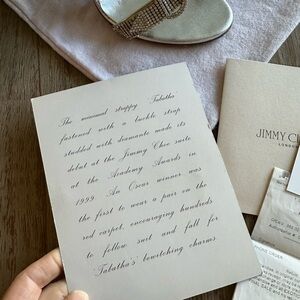 The minimal strappy 'Tabatha'
fastened with a buckle strap
studded with diamante made its
debut at the Jimmy Choo suite
at the Academy Awards in
1999. An Oscar winner was
the first to wear a pair on the
red carpet, encouraging hundreds
to follow suit and fall for
'Tabatha's' bewitching charms
JIMMY C
LONDON